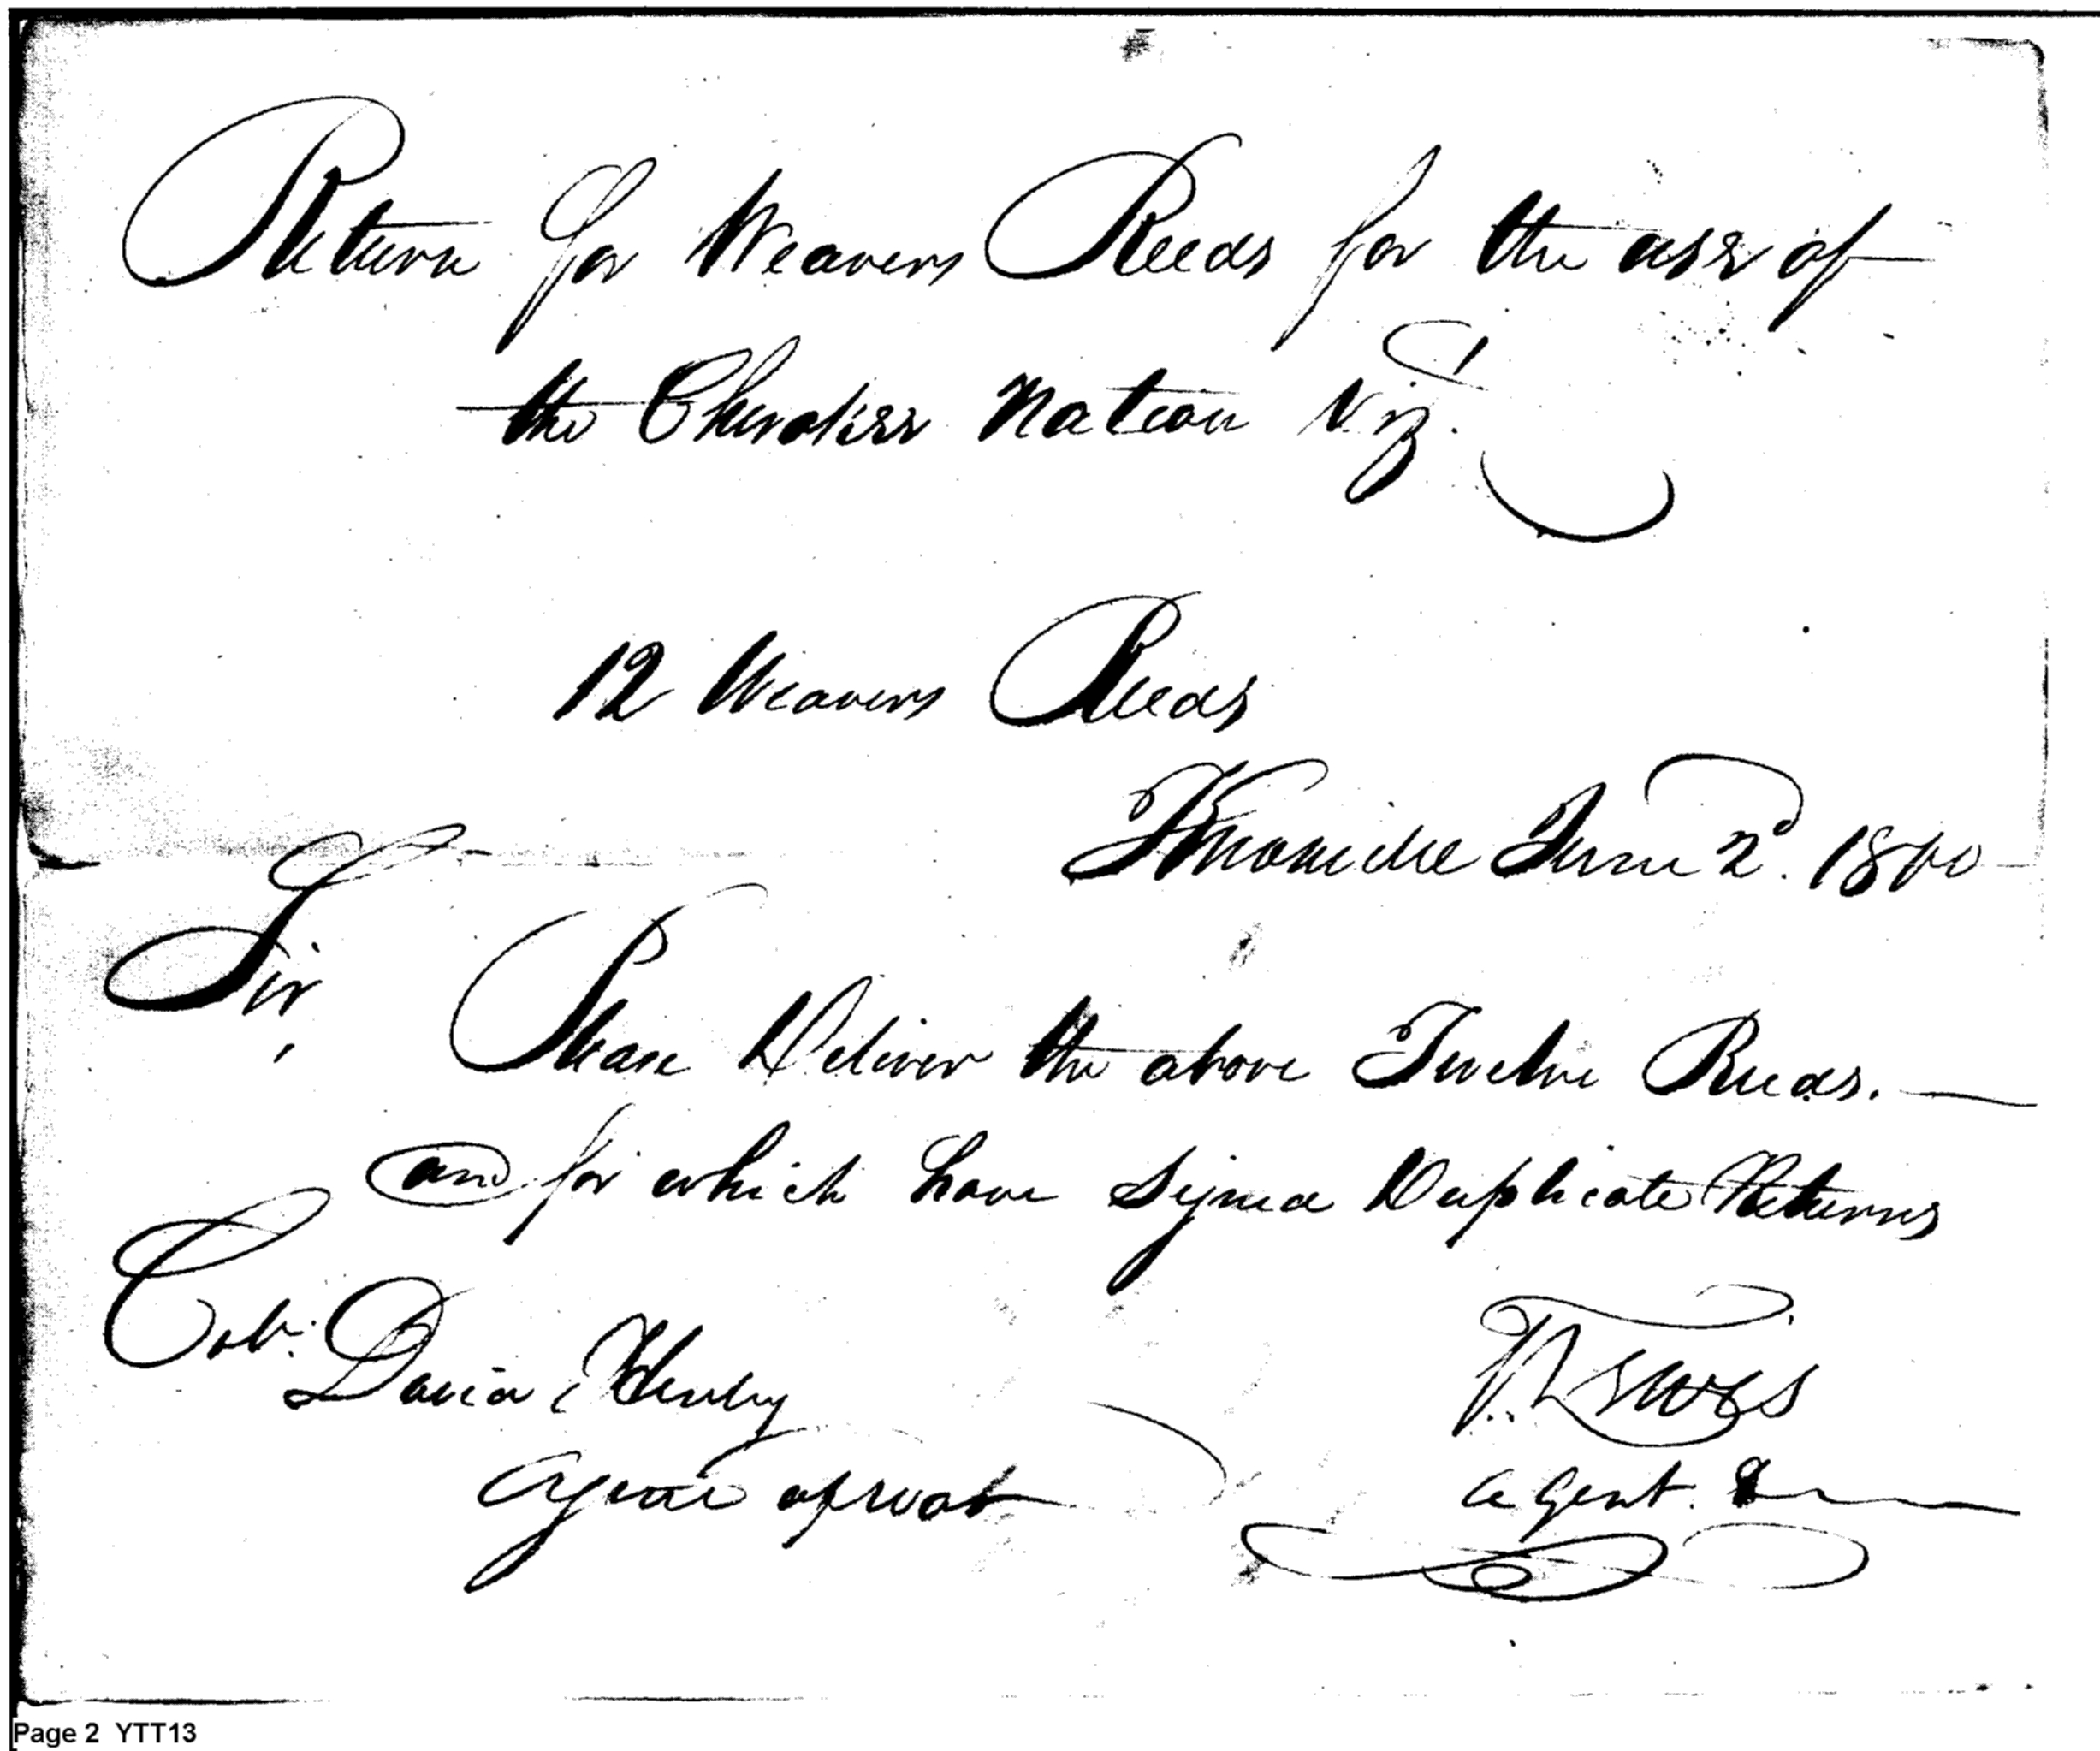 Return for Weavers Reeds for the use of
the Cherokee Nation Viz.
12 Weavers Reeds
Knoxville June 2d. 1800
Sir,
Please Deliver the above Twelve Reeds.
and for which have signed Duplicate Returns
Col. David Henley
Agent of War
T. Lewis
agent.